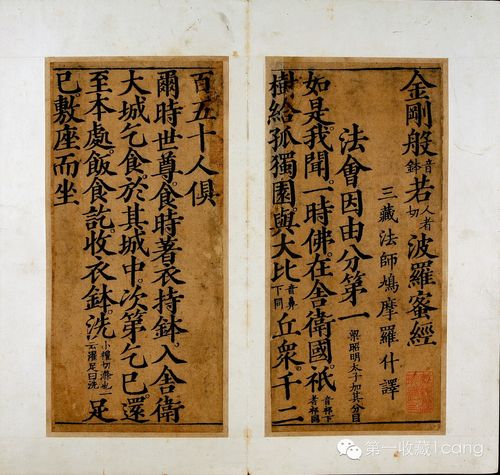 金剛般音鉢若人者切波羅蜜經
三藏法師鳩摩羅什譯
法會因由分第一梁昭明太子加其分目
如是我聞一時佛在舍衛國祇
樹給孤獨園與大比音鼻下同丘衆千二
百五十人俱
爾時世尊食時著衣持鉢入舍衛
大城乞食於其城中次第乞已還
至本處飯食訖收衣鉢洗足
已敷座而坐
第一收藏1cang